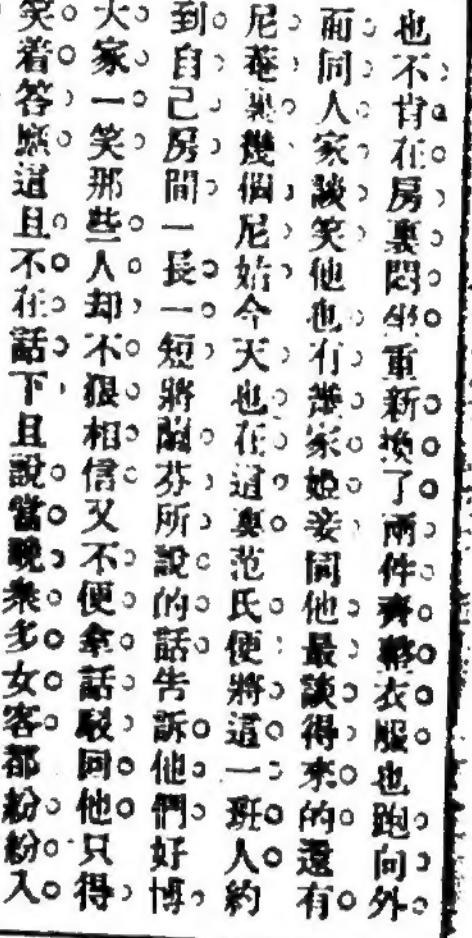 也不肯在房裏悶坐重新換了兩件齊整衣服也跑向外
面同人家談笑他也有幾家姬妾同他最談得來的還有
尼菴裏幾個尼姑今天也在這裏范氏便將這一班人約
到自己房間一長一短將蘭芬所說的話告訴他們好博
大家一笑那些人却不狠相信又不便拿話駁回他只得
笑着答應道且不在話下且說當晚衆多女客都紛紛入